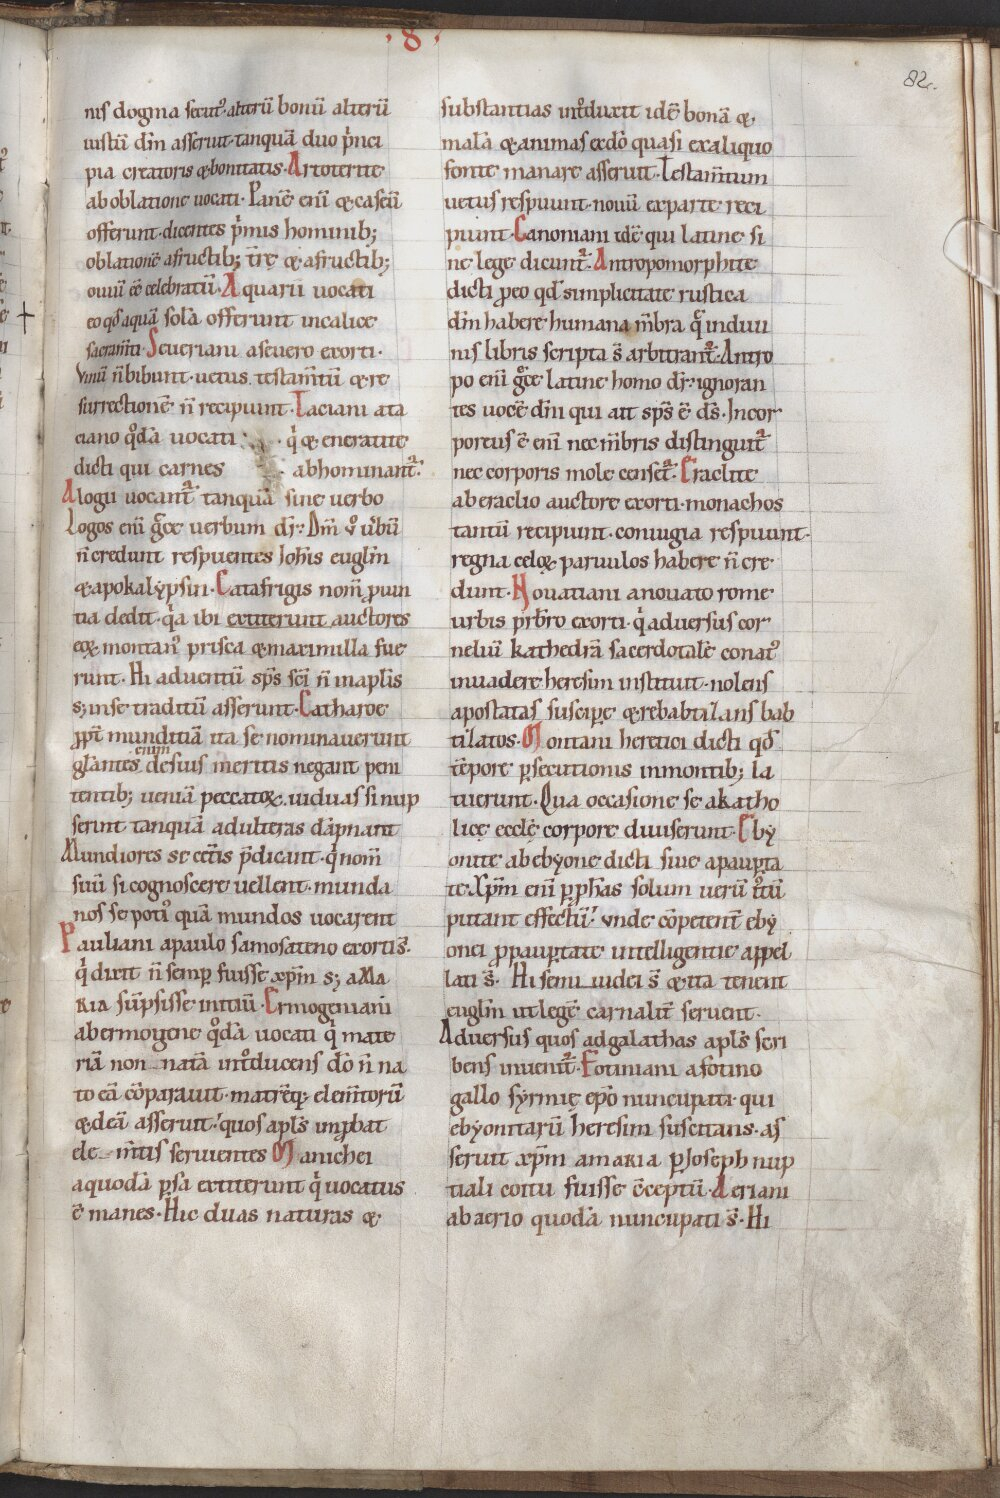 ·8·
82.
nis dogma secut᷒ alterū bonū alterū
iustū dm̄ asserunt·tanquā duo p̓nci
pia creatoris &bonitatis·Artotertite
ab oblatione uocati·Panē eni̅ & caseū
offerunt·dicentes p̓mis hominib;
oblationē afructib; tr̄e & afructib;
ouiū ēē celebratū·Aquarii uocati
eo qd̓ aquā solā offerunt incalice
sacram̄ti·Seueriani aseuero exorti·
Vinū n̄ bibunt·uetus testam̄tū & re
surrectionē n̄ recipiunt·Taciani ata
ciano qͦdā uocati · q̓ & eneratite
dicti qui carnes abhominant᷑·
Alogii uocant᷑ tanquā sine uerbo
Logos eni̅ gͬce uerbum dr̄·Dm̄ uͦ ūbū
n̄ credunt respuentes Joh̄is eug̅lm
&apokalẏpsin·Catafrigis nom̄ puin
tia dedit·q̓a ibi extiterunt auctores
eoꝝ montan᷒ prisca &maximilla fue
runt·Hi aduentū sp̄s sc̄i n̄ inapl̄is
s; inse traditū asserunt·Catharoe
ꝓpt̄ munditiā ita se nominauerunt
glāntes enim desuis meritis negant peni
tentib; ueniā peccatoꝝ·uiduas si nup
serint tanquā adulteras dāpnant
Mundiores se cet̄is p̄dicant·q̓ nom̄
suū si cognoscere uellent·munda
nos se poti᷒ quā mundos uocarent
Pauliani apaulo samosateno exorti s̄·
q̓ dixit n̄ semꝑ fuisse xp̄m s; aMa
RIA sūpsisse initiū·Ermogeniani
abermogene qͦdā uocati q̓ mate
riā non natā int᷒oducens dō n̄ na
to eā cōparauit·matrēq; elem̄torū
&deā asseruit·quos apl̄s inp̱bat
ele m̄tis seruientes Manichei
aquodā ꝑsa extiterunt q̓ uocatus
ē manes·Hic duas naturas &
substantias int᷒oduxit idē bonā &
malā &animas exdō quasi exaliquo
fonte manare asseruit·Testam̄tum
uetus respuunt·nouū exparte reci
piunt·Canoniani idē qui latine si
ne lege dicunt᷑·Antropomorphite
dicti ꝑeo qd̓ simplicitate rustica
dm̄ habere humana m̄bra q̄ indiui
nis libris scripta s̄ arbitrant᷑·Antro
po eni̅ gͬce latine homo dr̄·ignoran
tes uocē dn̄i qui ait sp̄s ē d̄s·Incor
poreus ē eni̅ nec m̄bris distinguit᷑
nec corporis mole censet᷑·Eraclite
aberaclio auctore exorti·monachos
tantū recipiunt·coniugia respuunt·
regna celoꝝ paruulos habere n̄ cre
dunt·Nouatiani anouato rome
urbis prb̄ro exorti·q̓ aduersus cor
neliū kathedrā sacerdotalē conat᷒
inuadere heresim instituit·nolens
apostatas suscipe &rebabtilans bab
tilatos·Montani heretici dicti qd̓
tēpore ꝑsecutionis inmontib; la
tuerunt·Qua occasione se akatho
licę ecclę corpore diuiserunt·Ebẏ
onite abebẏone dicti siue apauꝑta
te·Xp̄m eni̅ ꝑ ꝓphas solum uerū it̄ū
putant effectū·unde cōpetent̄ ebẏ
onei ꝓ pauꝑtate intelligentie appel
lati s̄· Hi semi iudei s̄ & ita tenent
eug̅lm ut legē carnalit̄ seruent·
Aduersus quos adgalathas apl̄s scri
bens inuenit᷑·Fotiniani afotino
gallo sẏrmię epō nuncupati·qui
ebẏonitarū heresim suscitans·as
seruit xp̄m aMARIA ꝑ Joseph nup
tiali coitu fuisse c̄ceptū·Aeriani
abaerio quodā nuncupati s̄·Hi